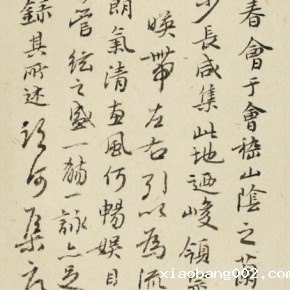 春會于會稽山陰之蘭
少長咸集此地迺峻領崇
暎帶左右引以為流
朗氣清惠風何暢娛目
管絃之盛一觴一詠亦足
錄其所述
xiaobang002.cn